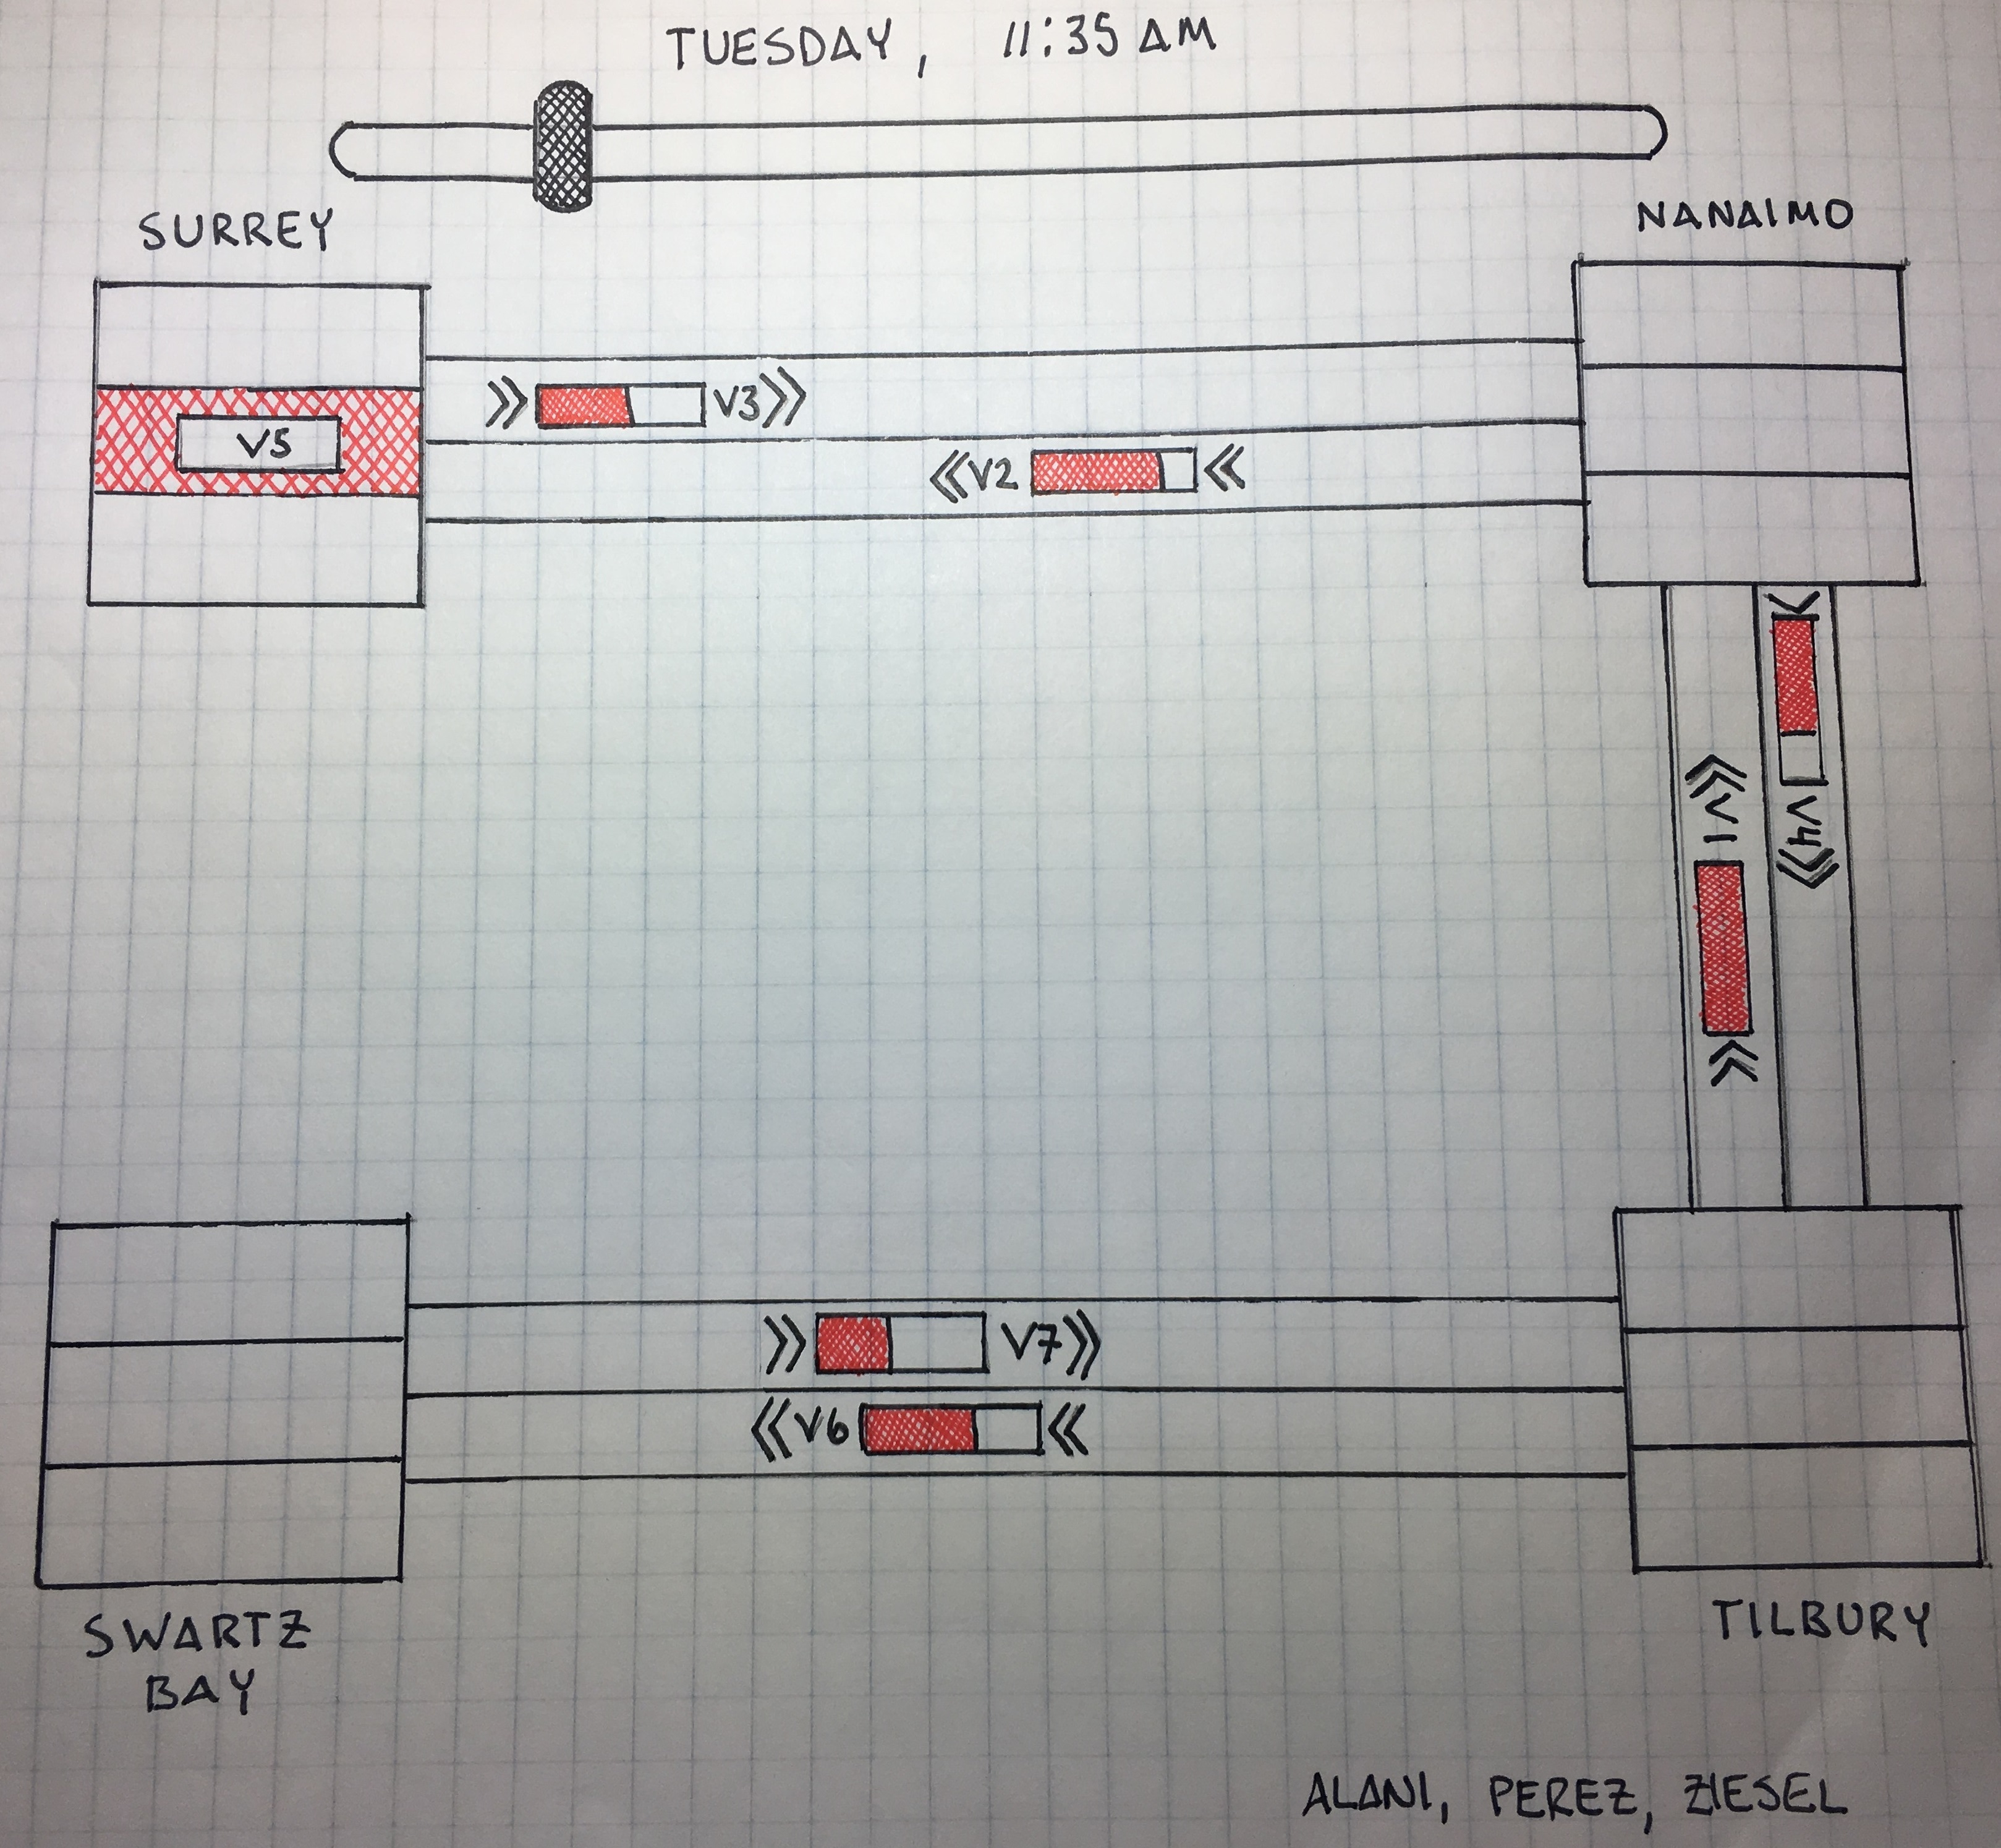 TUESDAY, 11:35 AM
SURREY
NANAIMO
V5
V3
V2
V4
V1
V7
V6
SWARTZ
BAY
TILBURY
ALANI, PEREZ, ZIESEL